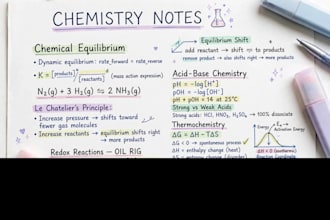 CHEMISTRY NOTES
Chemical Equilibrium
• Dynamic equilibrium: rate_forward = rate_reverse
• K = [products] / [reactants] (mass action expression)
N₂(g) + 3 H₂(g) ⇌ 2 NH₃(g)
Le Chatelier's Principle:
• Increase pressure → shifts toward
fewer gas molecules
• Increase reactants → equilibrium shifts right
→ more products
Redox Reactions — OIL RIG
Equilibrium Shift:
add reactant → shift to products
remove product → also shifts right → more products
Acid-Base Chemistry
pH = -log[H⁺]
pOH = -log[OH⁻]
pH + pOH = 14 at 25°C
Strong vs Weak Acids
Strong acids: HCl, HNO₃, H₂SO₄ → 100% dissociate
Thermochemistry
ΔG = ΔH - TΔS
ΔG < 0 → spontaneous process ✓
ΔH = enthalpy change (heat)
ΔS = entropy change (disorder)
Energy
Eₐ =
Activation Energy
ΔH < 0 (exothermic)
Reaction Coordinate